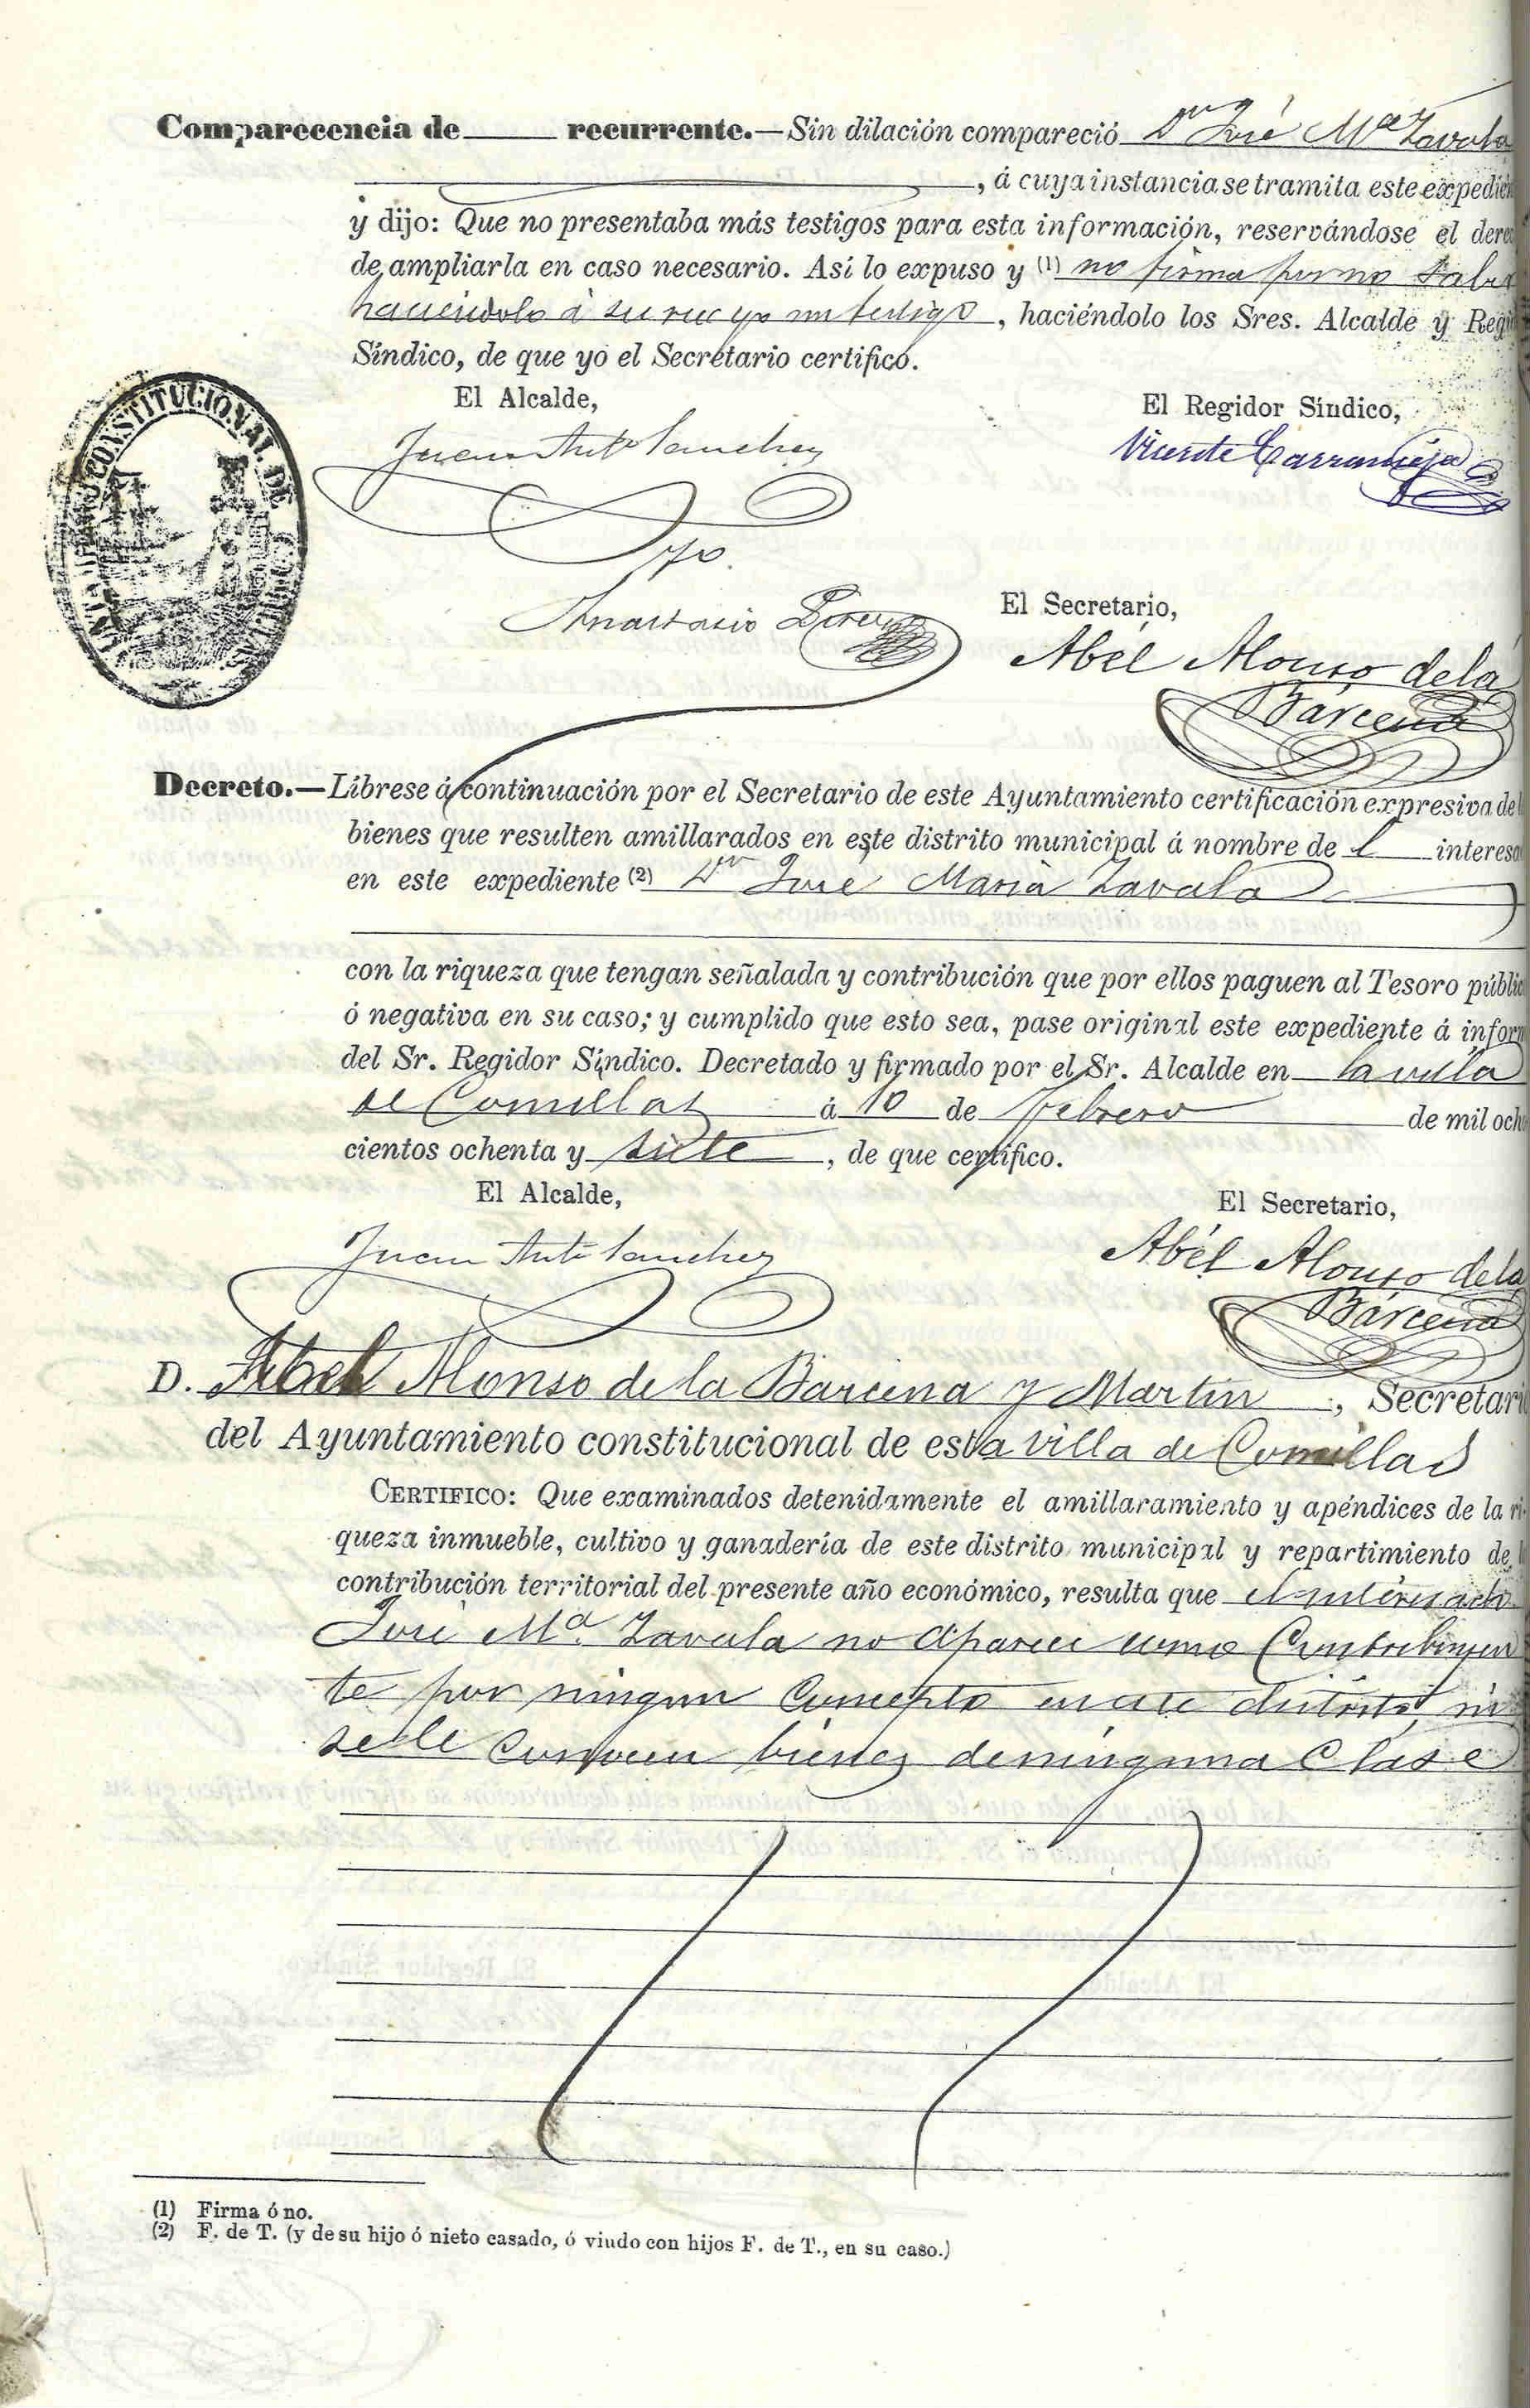 Comparecencia de recurrente.—Sin dilación compareció Dn José Ma Zavala
, á cuya instancia se tramita este expedien
y dijo: Que no presentaba más testigos para esta información, reservándose el derec
de ampliarla en caso necesario. Así lo expuso y (1) no firma por no saber
haciéndolo á su ruego un testigo, haciéndolo los Sres. Alcalde y Regi
Síndico, de que yo el Secretario certifico.
El Alcalde,
El Regidor Síndico,
CONSTITUCIONAL DE
Juan Anto Sanchez
Vicente
Anastasio
El Secretario,
Abél Alonso de la
Bárcena
Decreto.—Líbrese á continuación por el Secretario de este Ayuntamiento certificación expresiva de
bienes que resulten amillarados en este distrito municipal á nombre de l interesa
en este expediente (2) Dn José Maria Zavala
con la riqueza que tengan señalada y contribución que por ellos paguen al Tesoro públic
ó negativa en su caso; y cumplido que esto sea, pase original este expediente á inform
del Sr. Regidor Síndico. Decretado y firmado por el Sr. Alcalde en la villa
de Comillas á 10 de Febrero de mil och
cientos ochenta y siete, de que certifico.
El Alcalde,
El Secretario,
Juan Anto Sanchez
Abél Alonso de la
Bárcena
D. Abel Alonso de la Barcena y Martin, Secretari
del Ayuntamiento constitucional de esta villa de Comillas
CERTIFICO: Que examinados detenidamente el amillaramiento y apéndices de la ri-
queza inmueble, cultivo y ganadería de este distrito municipal y repartimiento de
contribución territorial del presente año económico, resulta que el interesado
José Ma. Zavala no aparece como Contribuyen
te por ningun Concepto en este distrito, ni
se le conocen bienes de ninguna Clase
(1) Firma ó no.
(2) F. de T. (y de su hijo ó nieto casado, ó viudo con hijos F. de T., en su caso.)